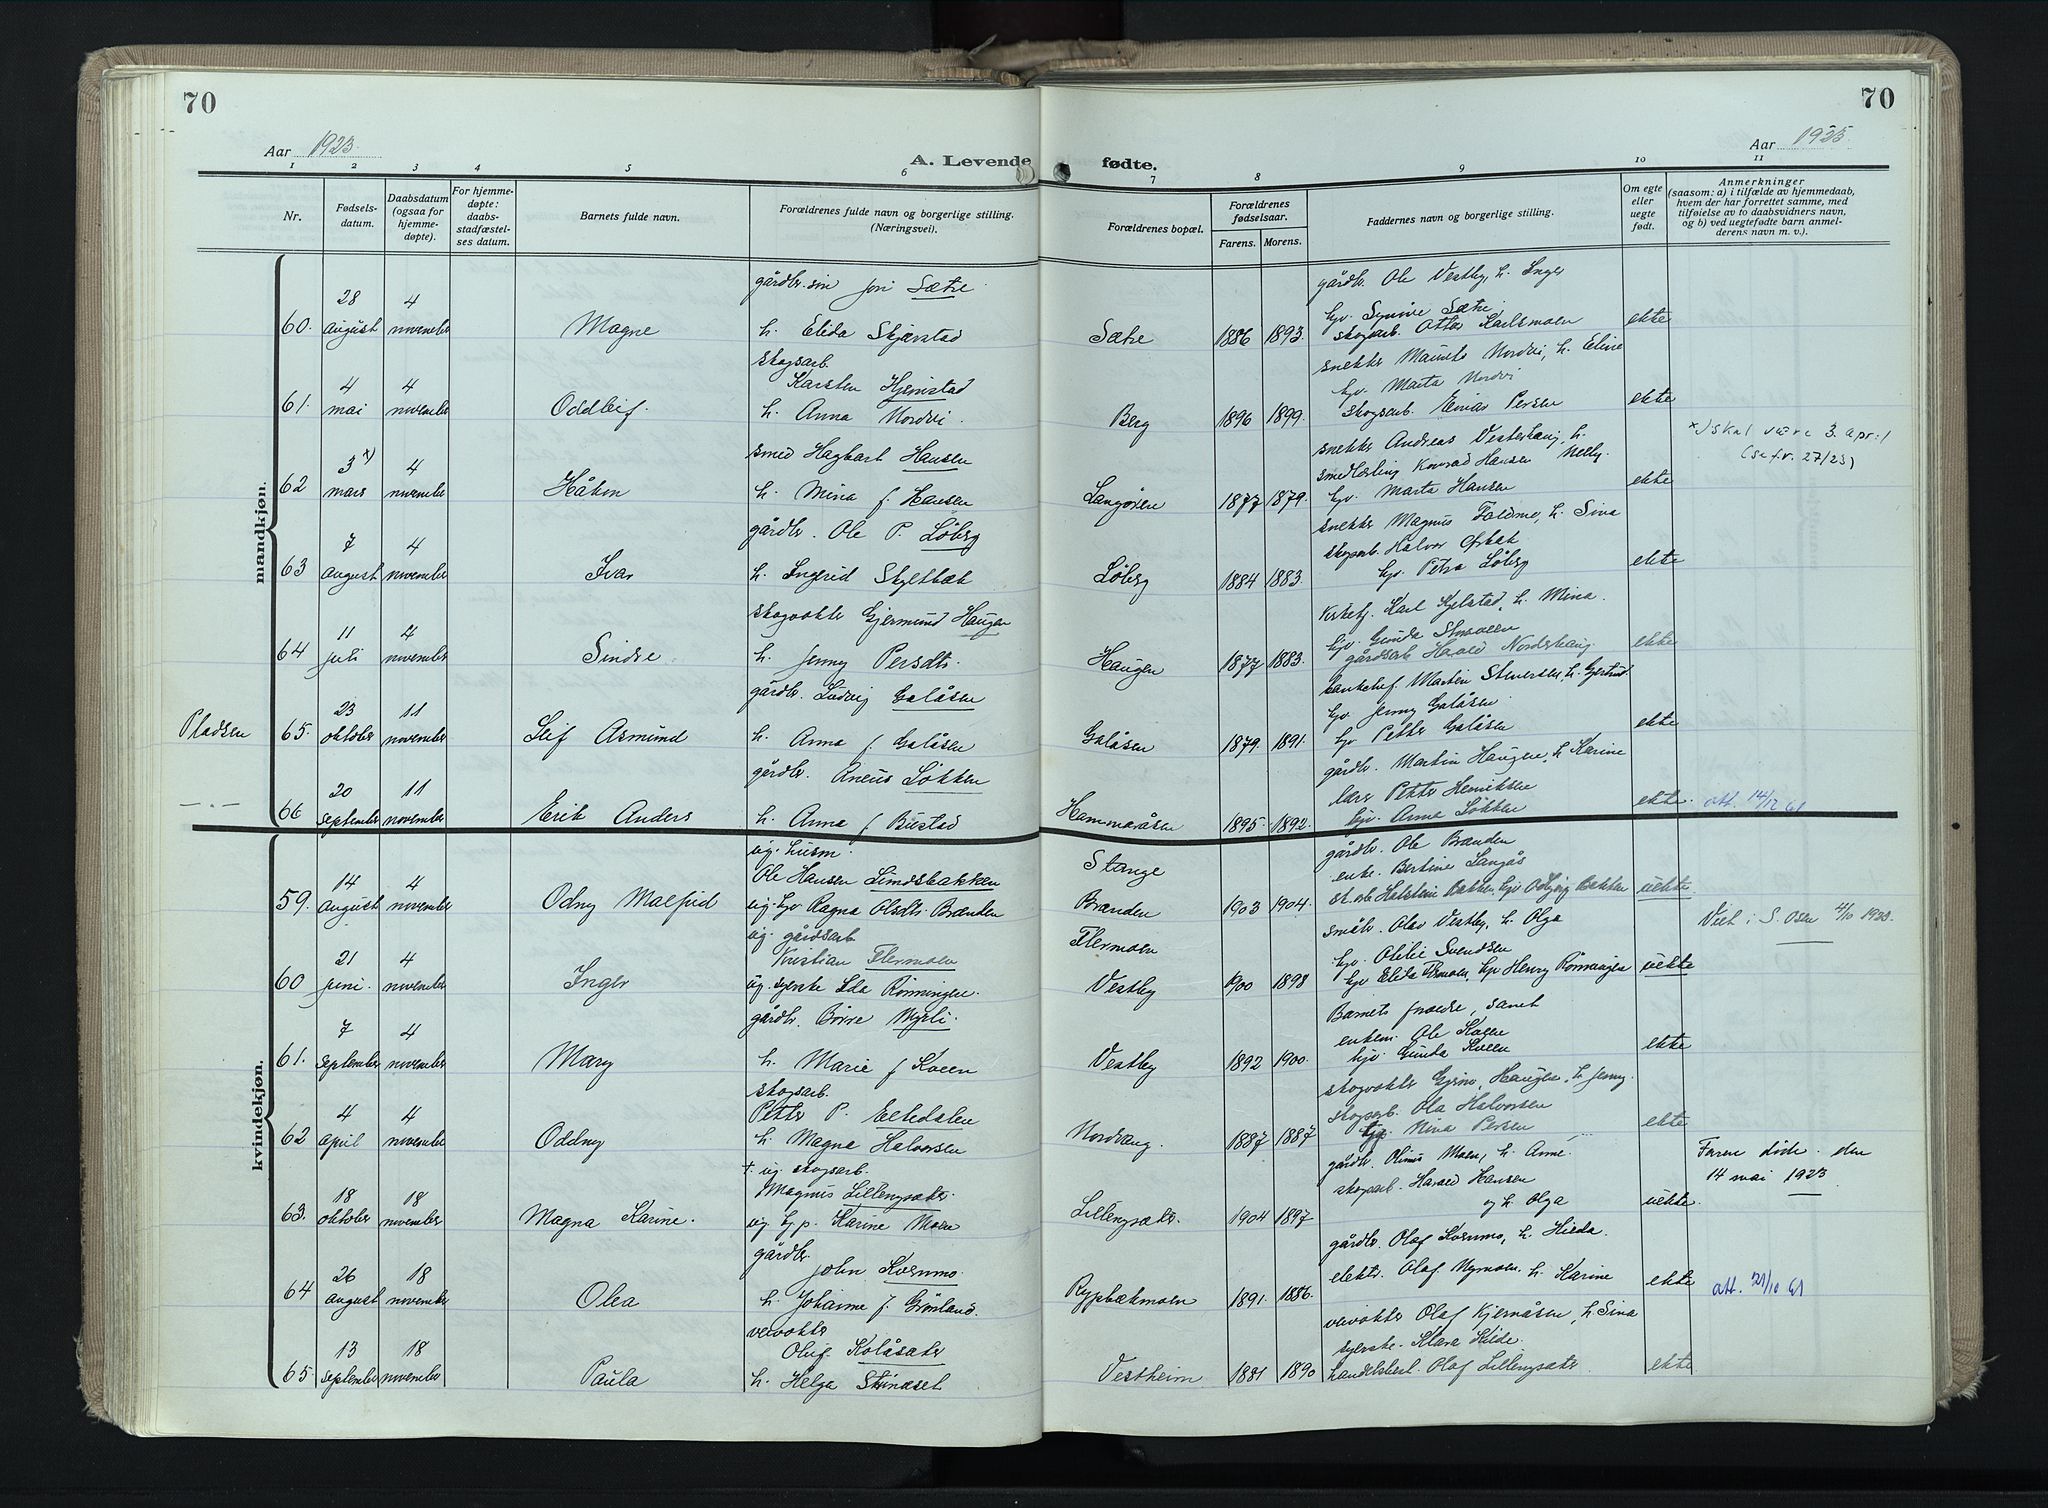 70
70
Aar 1923.
Aar 1923.
A. Levende fødte.
1 2 3 4 5 6 7 8 9 10 11
Nr.
Fødsels-
datum.
Daabsdatum
(ogsaa for
hjemme-
døpte).
For hjemme-
døpte:
daabs-
stadfæstel-
ses datum.
Barnets fulde navn.
Forældrenes fulde navn og borgerlige stilling.
(Næringsvei).
Forældrenes bopæl.
Forældrenes
fødselsaar.
Farens. Morens.
Faddernes navn og borgerlige stilling.
Om egte
eller
uegte
født.
Anmerkninger
(saasom: a) i tilfælde av hjemmedaab,
hvem der har forrettet samme, med
tilføielse av to daabsvidners navn,
og b) ved uegtefødte barn anmel-
derens navn m. v.).
mandkjøn.
60. 28 august 4 november Magne
gårdbr. søn Jon Sætre
h. Elida Skjærstad
Sætre 1886 1893.
gårdbr. Ole Vestby, h. Inger
hp. Synive Sætre,
skogsarb. Otter Karlsmoen
ekte
61. 4 mai 4 november Oddleif.
skogsarb.
Karsten Hjemstad
h. Anna Nordvi.
Berg 1896 1899.
snekker Maurits Nordvi, h. Eline
hp. Marta Nordvi
skogsarb. Enias Persen
ekte
62 3 x) mars 4 november Håkon
smed Hagbart Hansen
h. Mina f. Hansen
Langøien 1877 1879.
snekker Andreas Vesterhaug, h.
smedlærling Konrad Hansen Nelly.
hp. Marta Hansen
ekte
x) skal være 3. april
(se f.nr. 27/23)
63 7 august 4 november Ivar
gårdbr. Ole P. Løberg
h. Ingrid Skyltbæk
Løberg 1884 1883.
snekker Magnus Foldmo, h. Sina
skogsarb. Halvor
hp. Petra Løberg
ekte
64 11 juli 4 november Sindre
skogvokter Gjermund Haugen
h. Jenny Persdtr.
Haugen 1877 1883.
kirketj. Karl Kjelstad, h. Mina.
hp. Gunda
gårdsarb Harald Nordshaug
ekte
Pladsen
65. 23 oktober 11 november Leif Asmund
gårdbr. Ludvig Galåsen
h. Anna f. Galåsen
Galåsen 1879. 1891.
bankchef. Martin Stenersen, h. Gjertrud
hp. Jenny Galåsen
hp Petter Galåsen
ekte
-"-
66 20 september 11 november Erik Anders
gårdbr. Aneus Løkken
h. Anna f Bustad
Hammeråsen 1895 1892.
gårdbr. Martin Haugen, h. Karine
lærer Petter Henriksen
hp. Anna Løkken
ekte. att. 14/12 61
kvindekjøn.
59. 14 august 4 november Odny Malfrid
ug. husm.
Ole Hansen Lindsbakken
ug. hp Ragna Olsdtr. Brænden
Stange
Brænden 1903 1904.
gårdbr. Ole Brænden
enke. Bertine Langås
st. arb Halstein Bakken, hp Oddbjørg Bakken
uekte
Viet i S. Osen 4/10 1923.
60 21 juni. 4 november Inger
ug. gårdsarb
Kristian Flermoen
ug. syerske Ida Rønningen.
Flermoen
Vestby 1900 1898
småbr. Olav Vestby, h. Olga
hp. Otilie Svendsen
hp Elida Flermoen, hp Henry Rønningen
uekte
61. 7 september 4 november Mary
gårdbr. Børre Myrli.
h. Marie f Kveen
Vestby 1892 1900.
Barnets foreldre, samt
enkem. Ole Kveen
hp. Gunda Kveen
ekte
62 4 april 4 november Oddny
skogsarb.
Petter P. Eltedalen
h. Magna Halvorsen
Nordvang. 1887 1887
skogvokter Gjerm. Haugen, h. Jenny.
skogsarb. Ola Halvorsen
hp. Nina Persen
ekte
63. 18 oktober 18 november Magna Karine.
† ug. skogsarb.
Magnus Lillengsæter.
ug. hp. Karine Moen
Lillengsæter. 1904 1897
gårdbr. Olinus Moen, h. Anne.
skogsarb. Harald Hansen
og h. Olga
uekte
Faren døde den
14 mai 1923
64 26 august 18 november Olea
gårdbr.
John Kvernmo.
h. Johanne f. Grønland.
Rypbækmoen 1891. 1886.
gårdbr. Olaf Kvernmo, h. Hilda.
elektr. Olaf Nymoen, h. Karine
ekte
att. 21/10 61
65. 13 september 18 november Paula
veivokter
Oluf. Kolåsæter
h. Helga Strådset
Vestheim 1881 1890
veivokter Olaf Kjernåsen, h. Sina
syerske. Klara Kilde.
handelsbest. Olaf Lillengsæter.
ekte